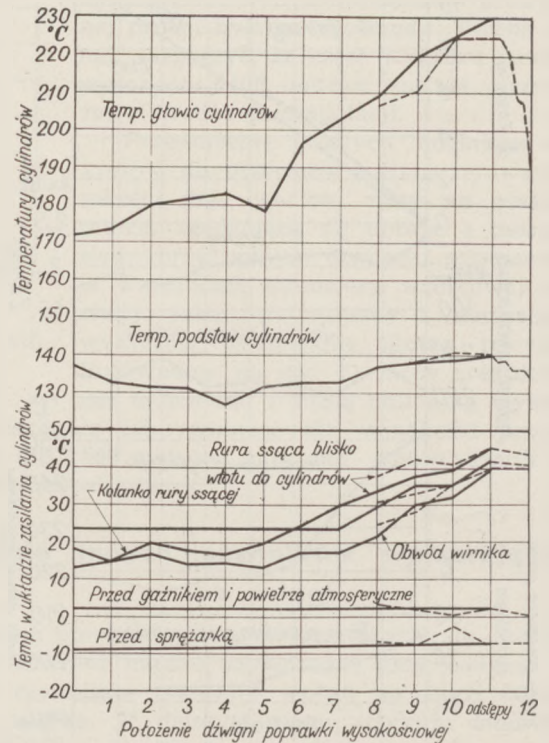 230
°C
220
210
200
190
180
170
160
150
140
130
50
°C
40
30
20
10
0
-10
-20
Temperatury cylindrów
Temp. w układzie zasilania cylindrów
Temp. głowic cylindrów
Temp. podstaw cylindrów
Rura ssąca blisko
wlotu do cylindrów
Kolanko rury ssącej
Obwód wirnika
Przed gaźnikiem i powietrze atmosferyczne
Przed sprężarką
1 2 3 4 5 6 7 8 9 10 odstępy 12
Położenie dźwigni poprawki wysokościowej